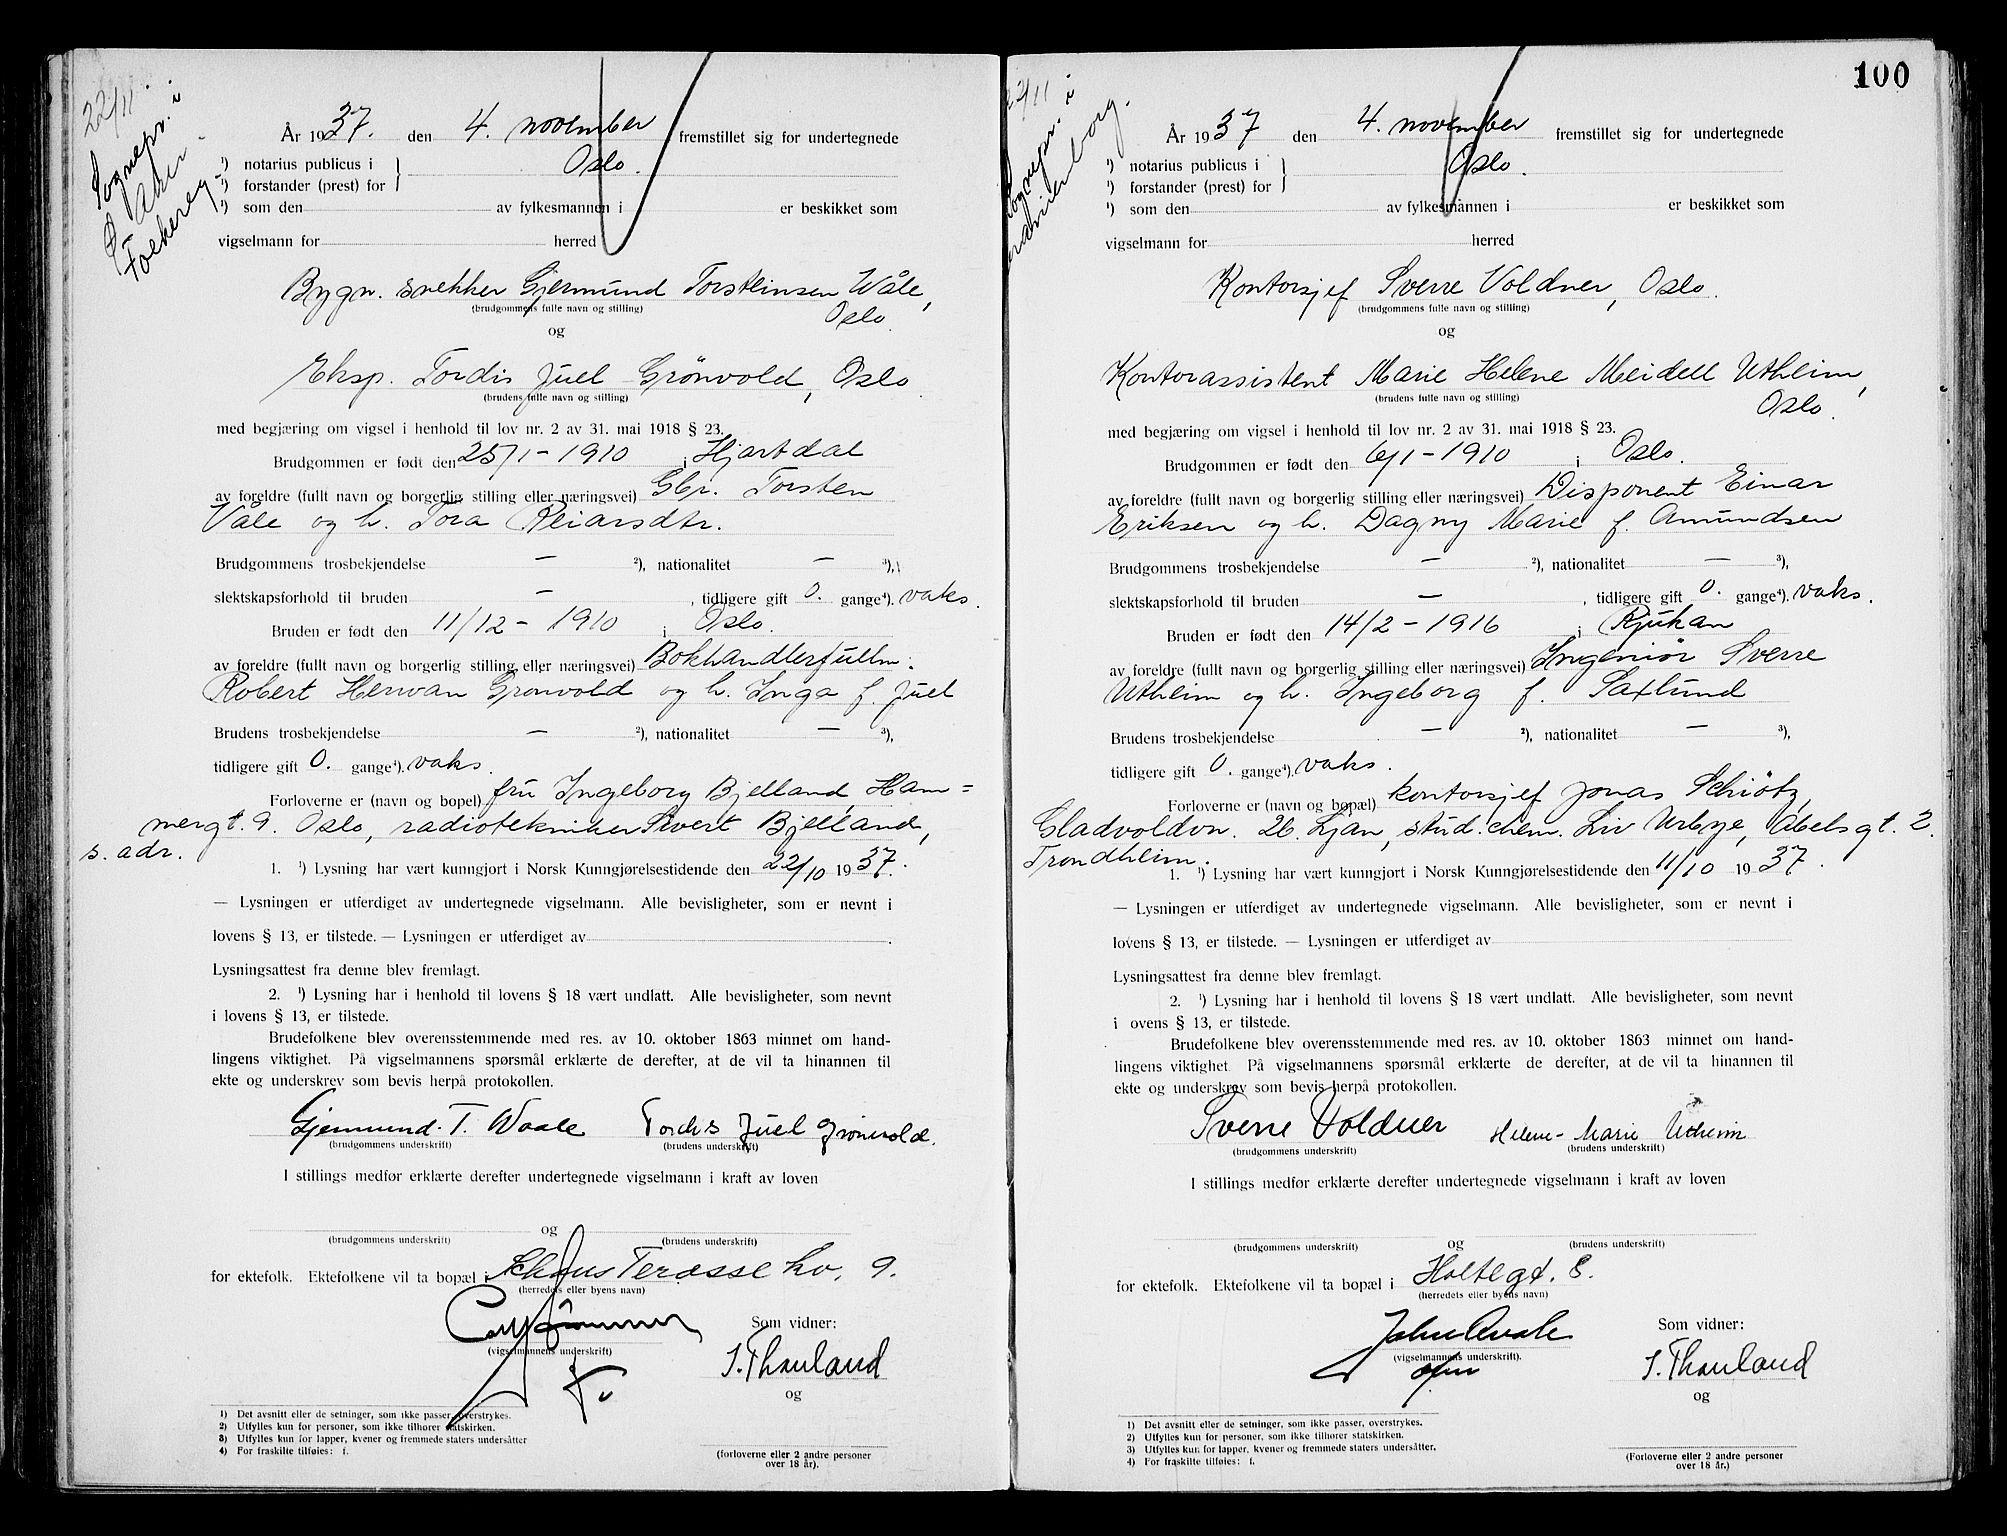 22/11
Sognepr. i
Ø. Aker
År 1937. den 4. november fremstillet sig for undertegnede
¹) notarius publicus i } Oslo.
¹) forstander (prest) for }
¹) som den av fylkesmannen i er beskikket som
vigselmann for herred
Bygn. snekker Gjermund Torsteinsen Våle,
(brudgommens fulle navn og stilling)
Oslo.
og
Eksp. Tordis Juel Grönvold, Oslo.
(brudens fulle navn og stilling)
med begjæring om vigsel i henhold til lov nr. 2 av 31. mai 1918 § 23.
Brudgommen er født den 25/1 - 1910 i Hjartdal
av foreldre (fullt navn og borgerlig stilling eller næringsvei) Gbr. Torsten
Våle og h. Tora Reiarsdtr.
Brudgommens trosbekjendelse — ²), nationalitet — ³),
slektskapsforhold til bruden — , tidligere gift 0. gange⁴). vaks.
Bruden er født den 11/12 - 1910 i Oslo.
av foreldre (fullt navn og borgerlig stilling eller næringsvei) Bokhandlerfullm.
Robert Herman Grönvold og h. Inga f. Juel
Brudens trosbekjendelse — ²), nationalitet — ³),
tidligere gift 0. gange⁴). vaks.
Forloverne er (navn og bopel) fru Ingeborg Bjelland, Ham=
mergt. 9. Oslo, radiotekniker Sivert Bjelland,
s. adr.
1. ¹) Lysning har vært kunngjort i Norsk Kunngjørelsestidende den 22/10 1937.
— Lysningen er utferdiget av undertegnede vigselmann. Alle bevisligheter, som er nevnt i
lovens § 13, er tilstede. — Lysningen er utferdiget av .
Lysningsattest fra denne blev fremlagt.
2. ¹) Lysning har i henhold til lovens § 18 vært undlatt. Alle bevisligheter, som nevnt
i lovens § 13, er tilstede.
Brudefolkene blev overensstemmende med res. av 10. oktober 1863 minnet om hand-
lingens viktighet. På vigselmannens spørsmål erklærte de derefter, at de vil ta hinannen til
ekte og underskrev som bevis herpå protokollen.
Gjermund. T. Waale Tordis Juel Grönvold.
(brudgommens underskrift) (brudens underskrift)
I stillings medfør erklærte derefter undertegnede vigselmann i kraft av loven
og
(brudgommens underskrift) (brudens underskrift)
for ektefolk. Ektefolkene vil ta bopæl i Schous Terasse 9.
(herredets eller byens navn)
Som vidner:
(vigselmannens underskrift)
I. Thauland
og
1) Det avsnitt eller de setninger, som ikke passer, overstrykes.
2) Utfylles kun for personer, som ikke tilhører statskirken.
3) Utfylles kun for lapper, kvener og fremmede staters undersåtter
4) For fraskilte tilføies: f.
(forloverne eller 2 andre personer
over 18 år).
100
22/11
Sognepr. i
År 1937 den 4. november fremstillet sig for undertegnede
¹) notarius publicus i } Oslo.
¹) forstander (prest) for }
¹) som den av fylkesmannen i er beskikket som
vigselmann for herred
Kontorsjef Sverre Voldner, Oslo.
(brudgommens fulle navn og stilling)
og
Kontorassistent Marie Helene Meidell Utheim,
(brudens fulle navn og stilling)
Oslo.
med begjæring om vigsel i henhold til lov nr. 2 av 31. mai 1918 § 23.
Brudgommen er født den 6/1 - 1910 i Oslo.
av foreldre (fullt navn og borgerlig stilling eller næringsvei) Disponent Einar
Eriksen og h. Dagny Marie f. Amundsen
Brudgommens trosbekjendelse — ²), nationalitet — ³),
slektskapsforhold til bruden — , tidligere gift 0. gange⁴). vaks.
Bruden er født den 14/2 - 1916 i Rjukan
av foreldre (fullt navn og borgerlig stilling eller næringsvei) Ingeniör Sverre
Utheim og h. Ingeborg f. Saxlund
Brudens trosbekjendelse — ²), nationalitet — ³),
tidligere gift 0. gange⁴). vaks.
Forloverne er (navn og bopæl) kontorsjef Jonas Schiötz,
Gladvoldvn. 26. Ljan, stud. chem. Liv Urbye, Abelsgt. 2.
Trondheim.
1. ¹) Lysning har vært kunngjort i Norsk Kunngjørelsestidende den 11/10 1937.
— Lysningen er utferdiget av undertegnede vigselmann. Alle bevisligheter, som er nevnt i
lovens § 13, er tilstede. — Lysningen er utferdiget av
Lysningsattest fra denne blev fremlagt.
2. ¹) Lysning har i henhold til lovens § 18 vært undlatt. Alle bevisligheter, som nevnt
i ovens § 13, er tilstede.
Brudefolkene blev overensstemmende med res. av 10. oktober 1863 minnet om hand-
lingens viktighet. På vigselmannens spørsmål erklærte de derefter, at de vil ta hinannen til
ekte og underskrev som bevis herpå protokollen.
Sverre Voldner Helene-Marie Utheim
(brudgommens underskrift) (brudens underskrift)
I stillings medfør erklærte derefter undertegnede vigselmann i kraft av loven
og
(brudgommens underskrift) (brudens underskrift)
for ektefolk. Ektefolkene vil ta bopæl i Holtegt. 8.
(herredets eller byens navn)
Som vidner:
(vigselmannens underskrift).
I. Thauland
og
1) Det avsnitt eller de setninger, som ikke passer, overstrykes.
2) Utfylles kun for personer, som ikke tilhører statskirken.
3) Utfylles kun for lapper, kvener og fremmede staters undersåtter.
4) For fraskilte tilføies: f.
(Forloverne eller 2 andre personer
over 18 år.)